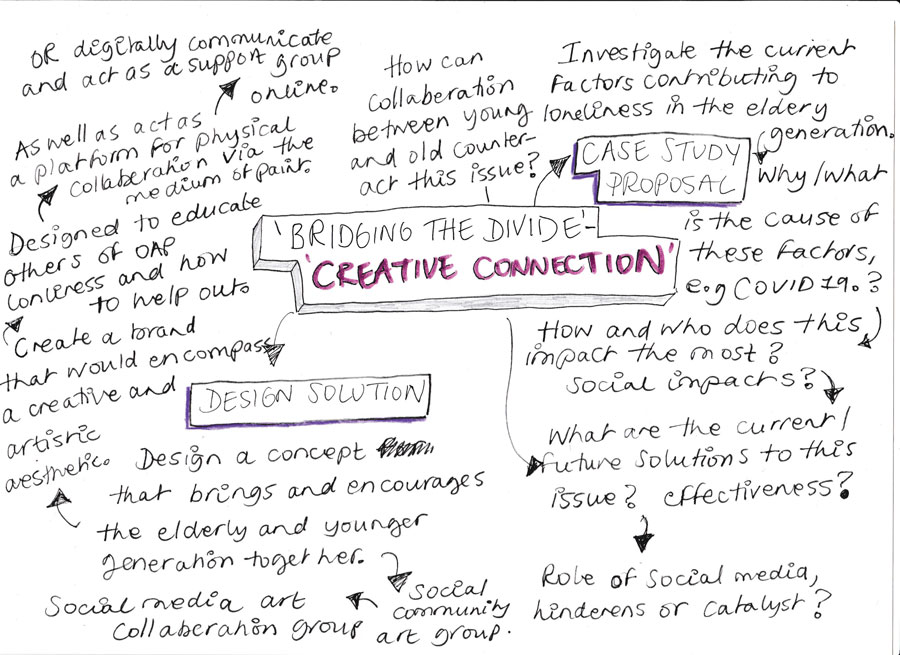 'BRIDGING THE DIVIDE'-
'CREATIVE CONNECTION'
CASE STUDY
PROPOSAL
Investigate the current
Factors contributing to
loneliness in the eldery
generation.
Why/What
is the cause of
these Factors,
e.g COVID 19.?
How and who does this
impact the most?
Social impacts?
What are the current/
future solutions to this
issue? effectiveness?
Role of Social media,
hinderens or catalyst?
How can
collaberation
between young
and old counter-
act this issue?
DESIGN SOLUTION
Design a concept
that brings and encourages
the elderly and younger
generation together.
Social
community
art group.
Social media art
collaberation group
Create a brand
that would encompass
a creative and
artistic
aesthetic.
Designed to educate
others of OAP
lonliness and how
to help out.
As well as act as
a platform for physical
collaberation via the
medium of paint.
OR digitally communicate
and act as a support group
online.